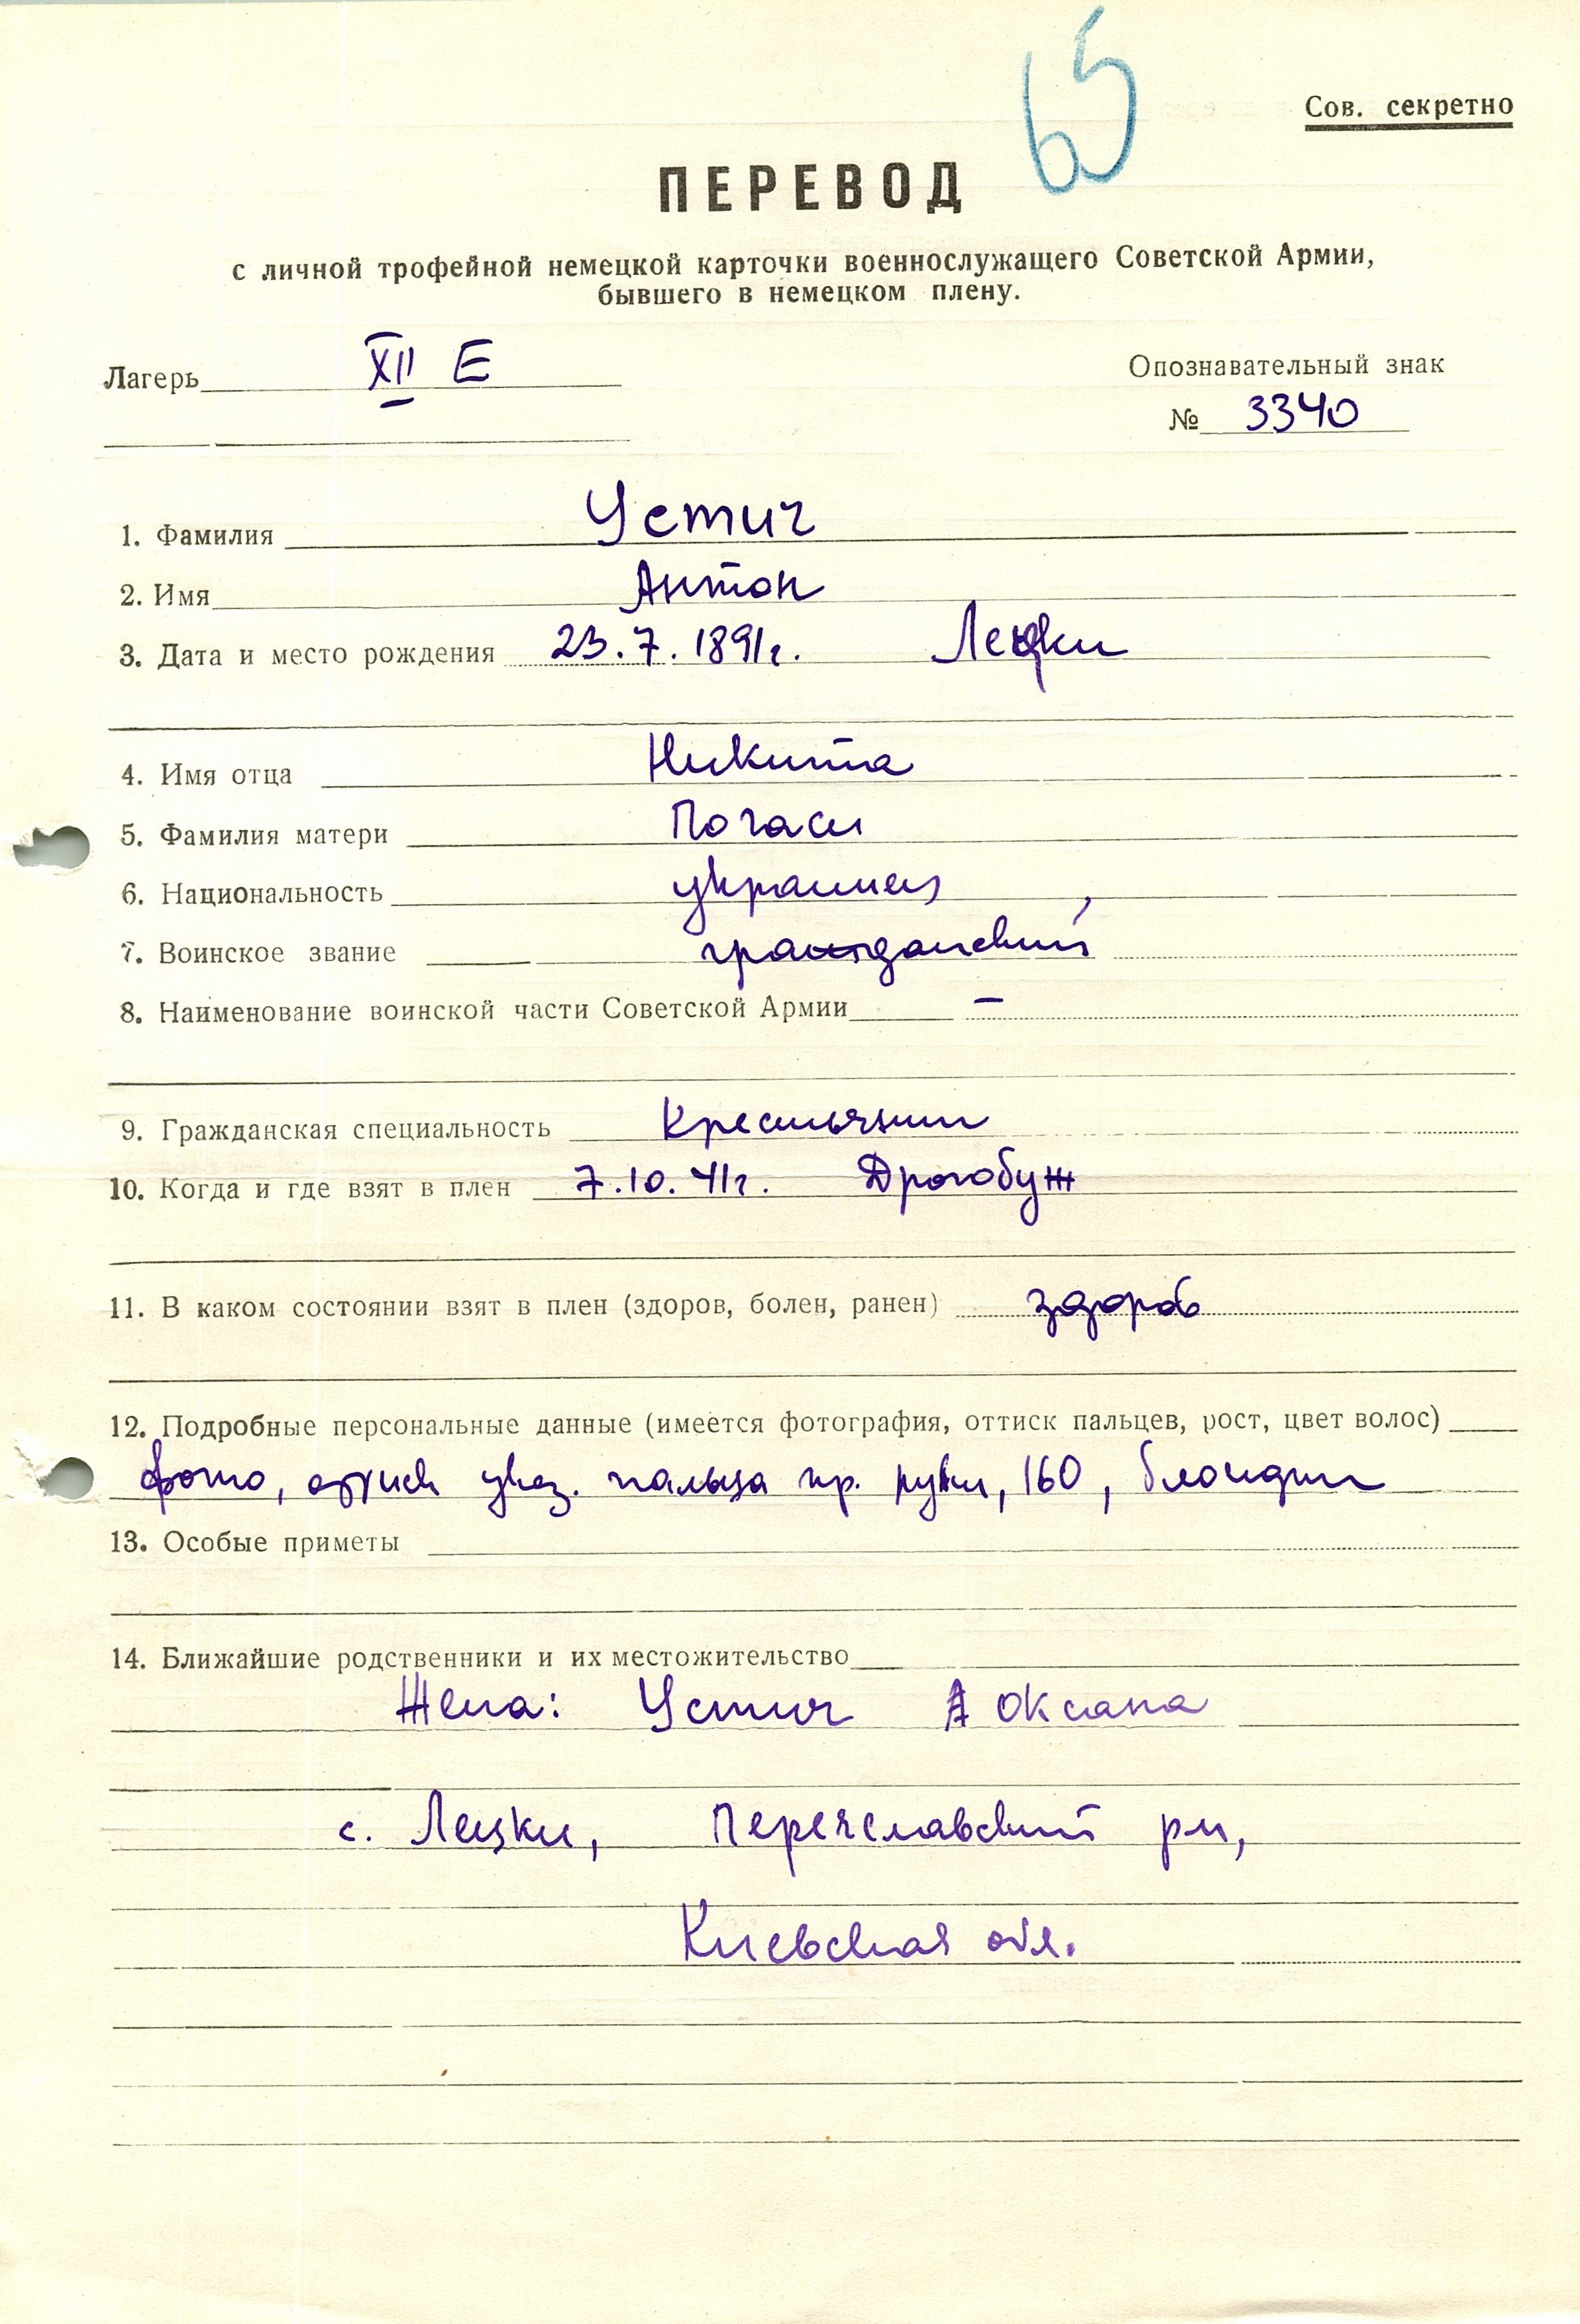 65
Сов. секретно
ПЕРЕВОД
с личной трофейной немецкой карточки военнослужащего Советской Армии,
бывшего в немецком плену.
Лагерь XII E
Опознавательный знак
№ 3340
1. Фамилия Устич
2. Имя Антон
3. Дата и место рождения 23.7.1891г. Лецки
4. Имя отца Никита
5. Фамилия матери Погаси
6. Национальность украинец
7. Воинское звание гражданский
8. Наименование воинской части Советской Армии —
9. Гражданская специальность Крестьянин
10. Когда и где взят в плен 7.10.41г. Дрогобуж
11. В каком состоянии взят в плен (здоров, болен, ранен) здоров
12. Подробные персональные данные (имеется фотография, оттиск пальцев, рост, цвет волос)
фото, оттиск указ. пальца пр. руки, 160, блондин
13. Особые приметы
14. Ближайшие родственники и их местожительство
Жена: Устич Оксана
с. Лецки, Переяславский рн,
Киевская обл.